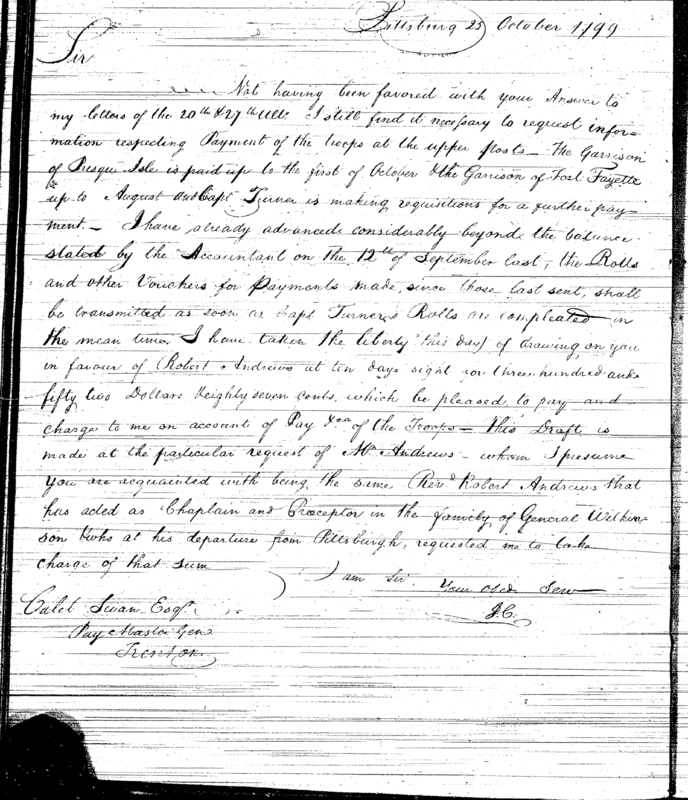 Pittsburg 25 October 1799
Sir
Not having been favored with your Answer to
my letters of the 20th & 27th Ulto I still find it necessary to request infor-
mation respecting Payment of the troops at the upper posts — The Garrison
of Presqu Isle is paid up to the first of October & the Garrison of Fort Fayette
up to August and Capt Turner is making requisitions for a further pay-
ment. — I have already advanced considerably beyond the balance
stated by the Accountant on the 12th of September last, the Rolls
and other Vouchers for Payments made, since those last sent, shall
be transmitted as soon as Capt Turners Rolls are compleated in
the mean time I have taken the liberty (this day) of drawing on you
in favour of Robert Andrews at ten days sight for three hundred and
fifty two Dollars & eighty seven cents, which be pleased to pay and
charge to me on account of Pay &ca of the Troops — this Draft is
made at the particular request of Mr Andrews — whom I presume
you are acquainted with being the same Revd Robert Andrews that
has acted as Chaplain and Preceptor in the family of General Wilkin-
son & who at his departure from Pittsburgh, requested me to take
charge of that sum
I am Sir Your Obed Serv
J.C.
Caleb Swan Esqr
Pay Master Genl
Trenton